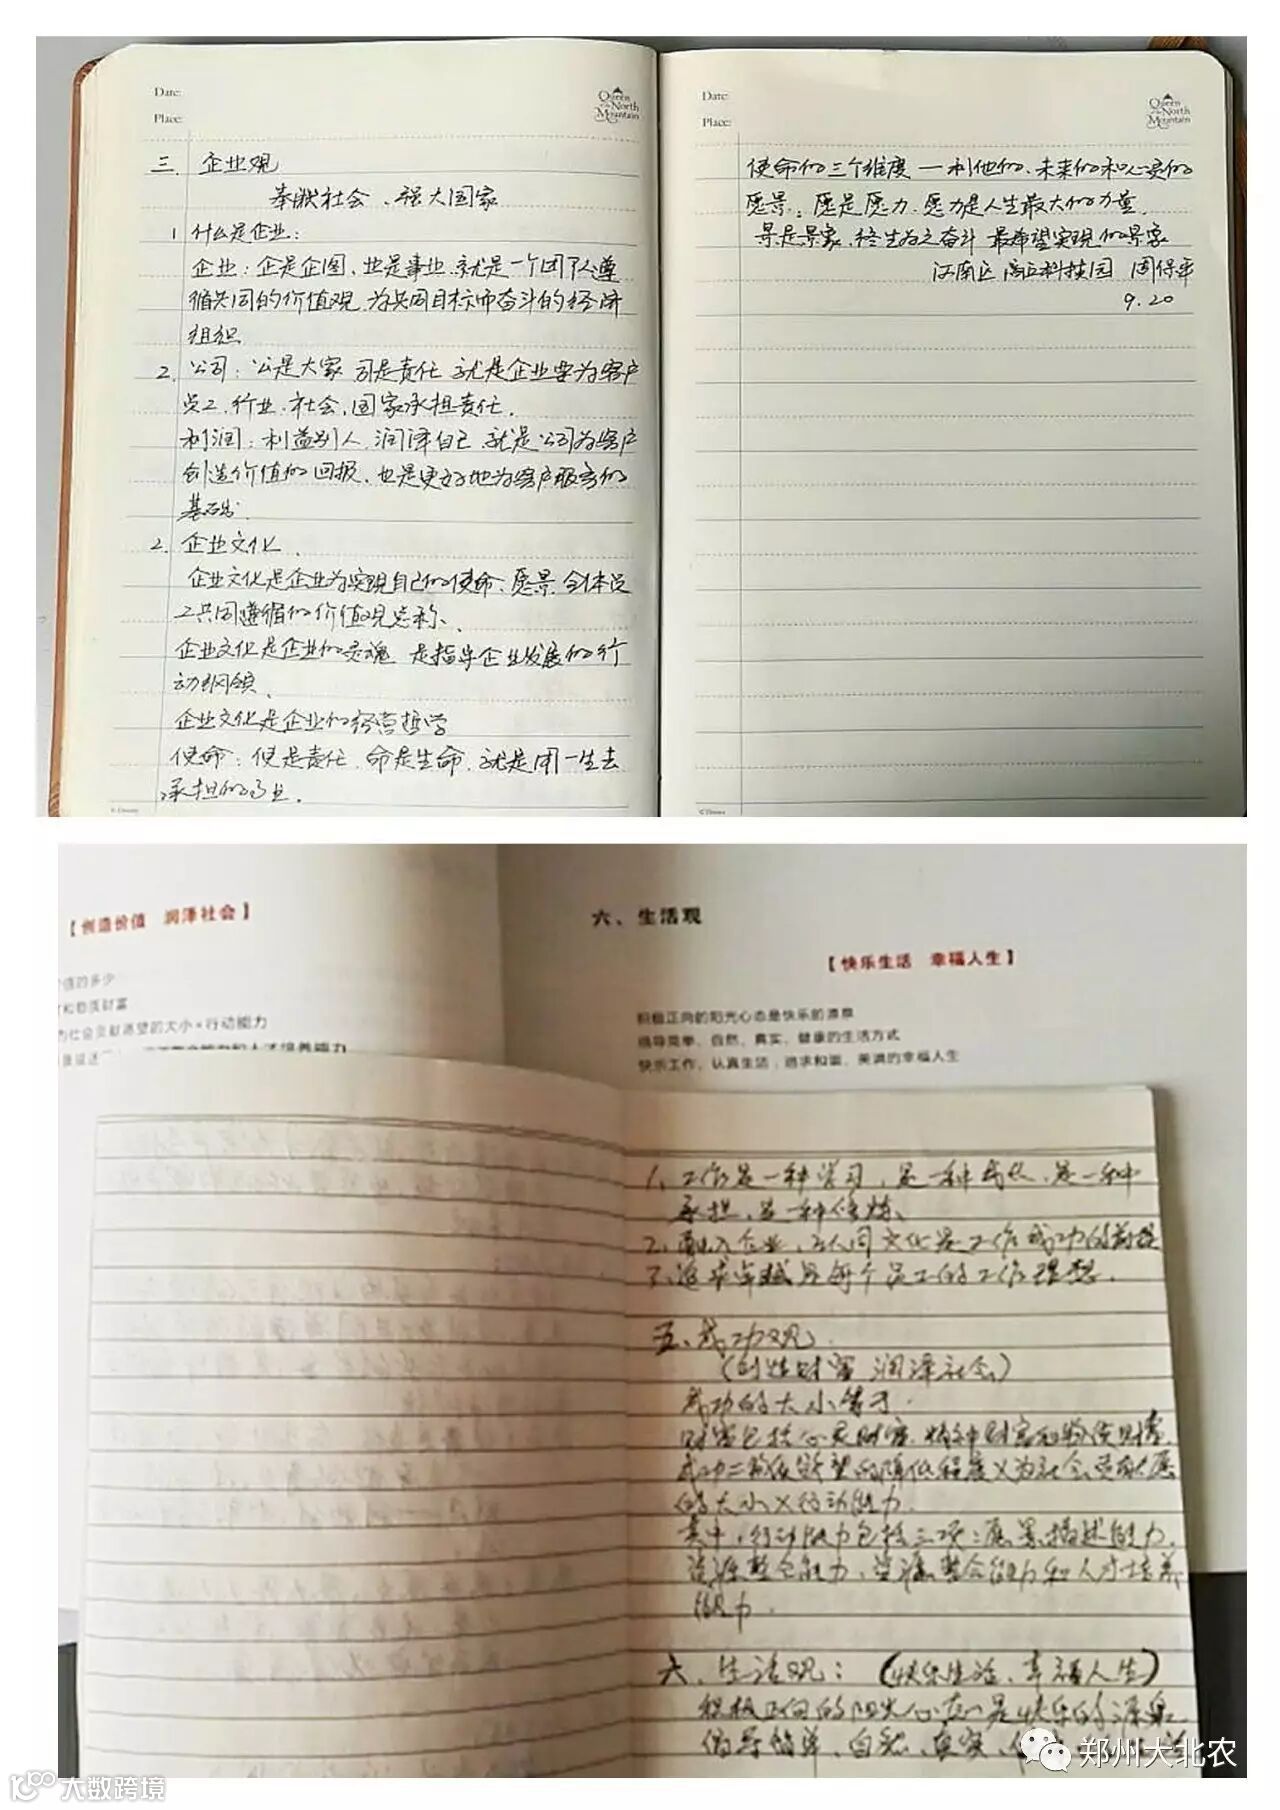 Date:
Place:
Queen
of the North
Mountain
三. 企业观
奉献社会、强大国家
1 什么是企业:
企业: 企是企图, 业是事业, 就是一个团队遵
循共同的价值观, 为共同目标而奋斗的经济
组织
2. 公司: 公是大家 司是责任 就是企业要为客户
员工、行业、社会、国家承担责任.
利润: 利益别人, 润泽自己, 就是公司为客户
创造价值的回报, 也是更好地为客户服务的
基础.
2. 企业文化.
企业文化是企业为实现自己的使命、愿景, 全体员
工共同遵循的价值观总称、
企业文化是企业的灵魂 是指导企业发展的行
动纲领.
企业文化是企业的经营哲学
使命: 使是责任, 命是生命, 就是用一生去
承担的事业.
© Disney
Date:
Place:
Queen
of the North
Mountain
使命的三个维度 — 利他的、未来的和心灵的
愿景: 愿是愿力, 愿力是人生最大的力量,
景是景象, 终生为之奋斗 最希望实现的景象
江南区 科技园 周保平
9.20
© Disney
【创造价值 润泽社会】
价值的多少
和物质财富
为社会贡献愿望的大小×行动能力
六、生活观
【快乐生活 幸福人生】
积极正向的阳光心态是快乐的源泉
倡导简单、自然、真实、健康的生活方式
快乐工作、认真生活,追求和谐、美满的幸福人生
1、工作是一种学习, 是一种成长, 是一种
承担, 是一种修炼、
2、融入企业, 认同文化是工作成功的前提
3、追求卓越是每个员工的工作理想.
五、成功观
(创造财富 润泽社会)
成功的大小等于.
财富包括心灵财富, 精神财富和物质财富,
成功=物质欲望的降低程度×为社会贡献愿
的大小×行动能力.
其中, 行动能力包括三项: 愿景描述能力,
资源整合能力, 资源整合能力和人才培养
能力.
六、生活观: (快乐生活、幸福人生)
积极正向的阳光心态是快乐的源泉
倡导简单、自然、真实、
郑州大北农
大数跨境